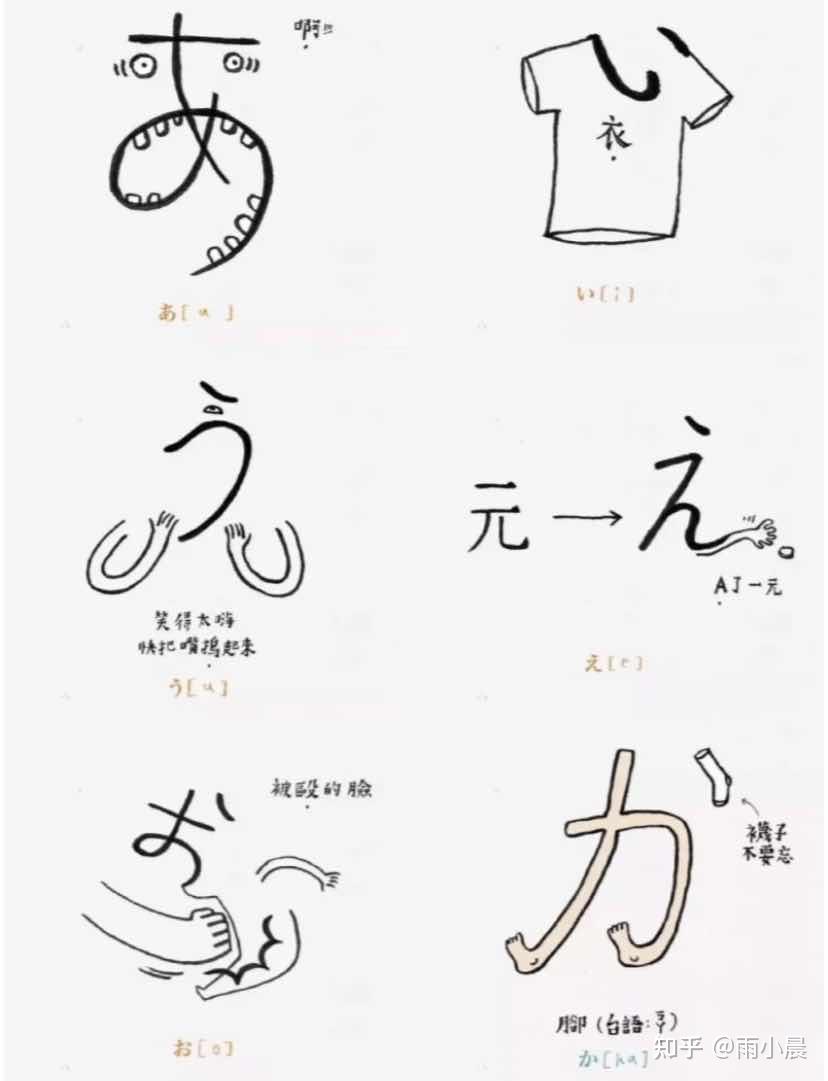 あ
啊!!!
あ[a]
い
衣
い[i]
う
笑得太嗨
快把嘴摀起來
う[u]
元 → え
AJ一元
え[e]
お
被毆的臉
お[o]
か
襪子
不要忘
腳(台語:ㄎㄚ)
か[ka]
知乎 @雨小晨